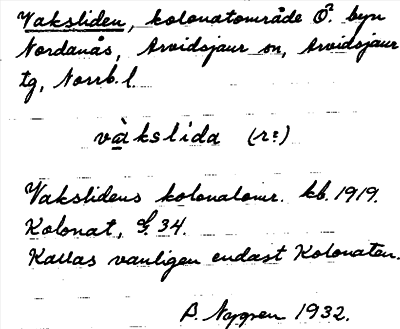 Vaksliden, kolonatområde Ö. byn
Nordanås, Arvidsjaur sn, Arvidsjaur
tg, Norrb. l.
vàkslida (r:)
Vakslidens kolonatomr. kb. 1919.
Kolonat, G. 34.
Kallas vanligen endast Kolonaten.
P. Nygren 1932.